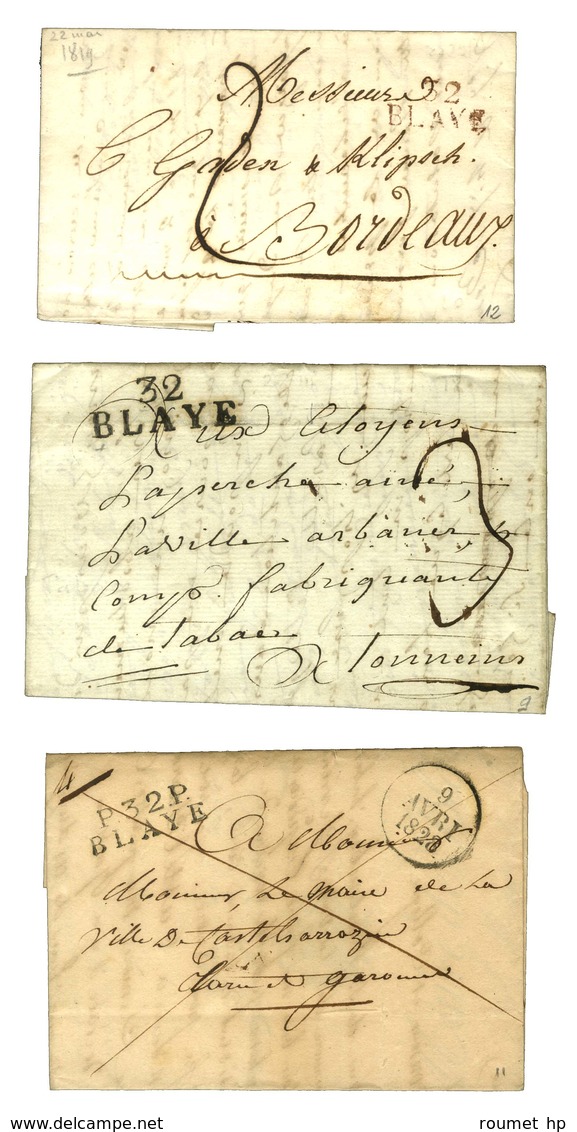 22 mai
1819
Messieurs
32
BLAYE
Gaden & Klipsch.
à Bordeaux.
2
12
32
BLAYE
Aux Citoyens
Laperche ainé,
Laville
Comp. fabriquants
de tabac
A Tonneins
3
9
P.32.P.
BLAYE
9
AVRIL
1828
A Monsieur
Monsieur Le Maire de La
Ville De Castelsarrazin
Tarn et garonne
11
roumet hp